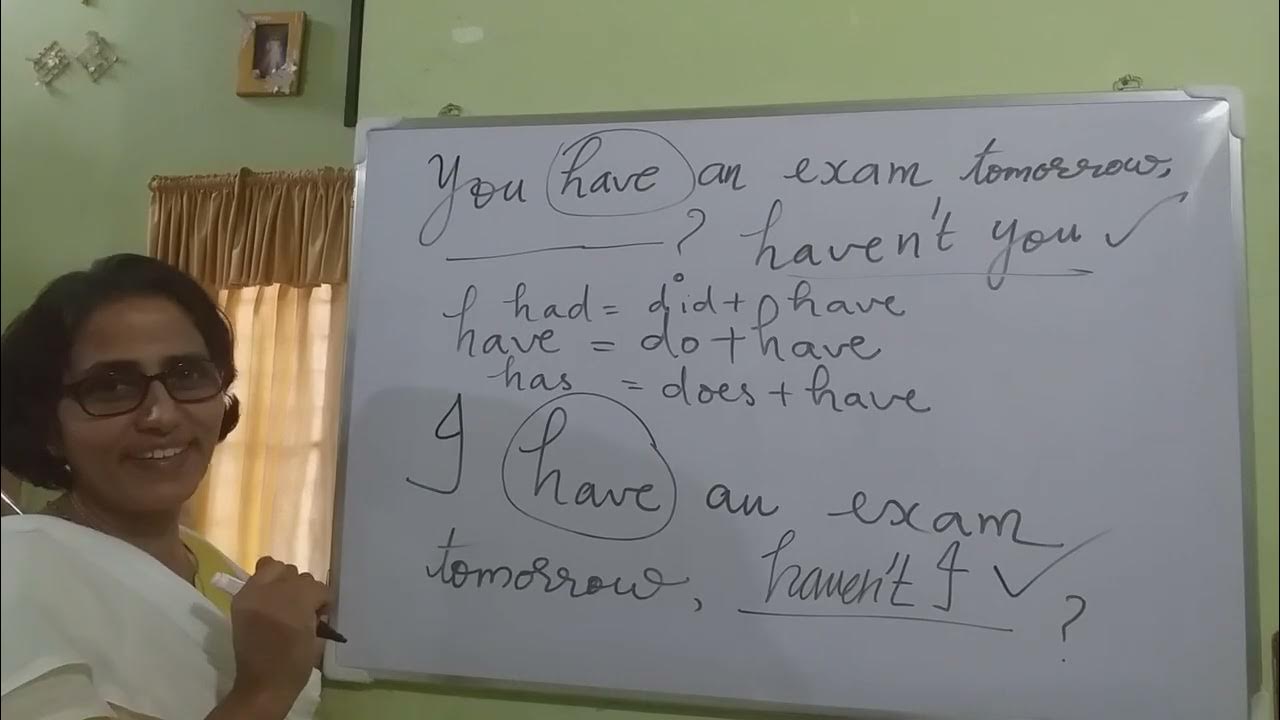 You have an exam tomorrow,
________? haven't you ✓
had = did + have
have = do + have
has = does + have
I have an exam
tomorrow, haven't I ✓ ?